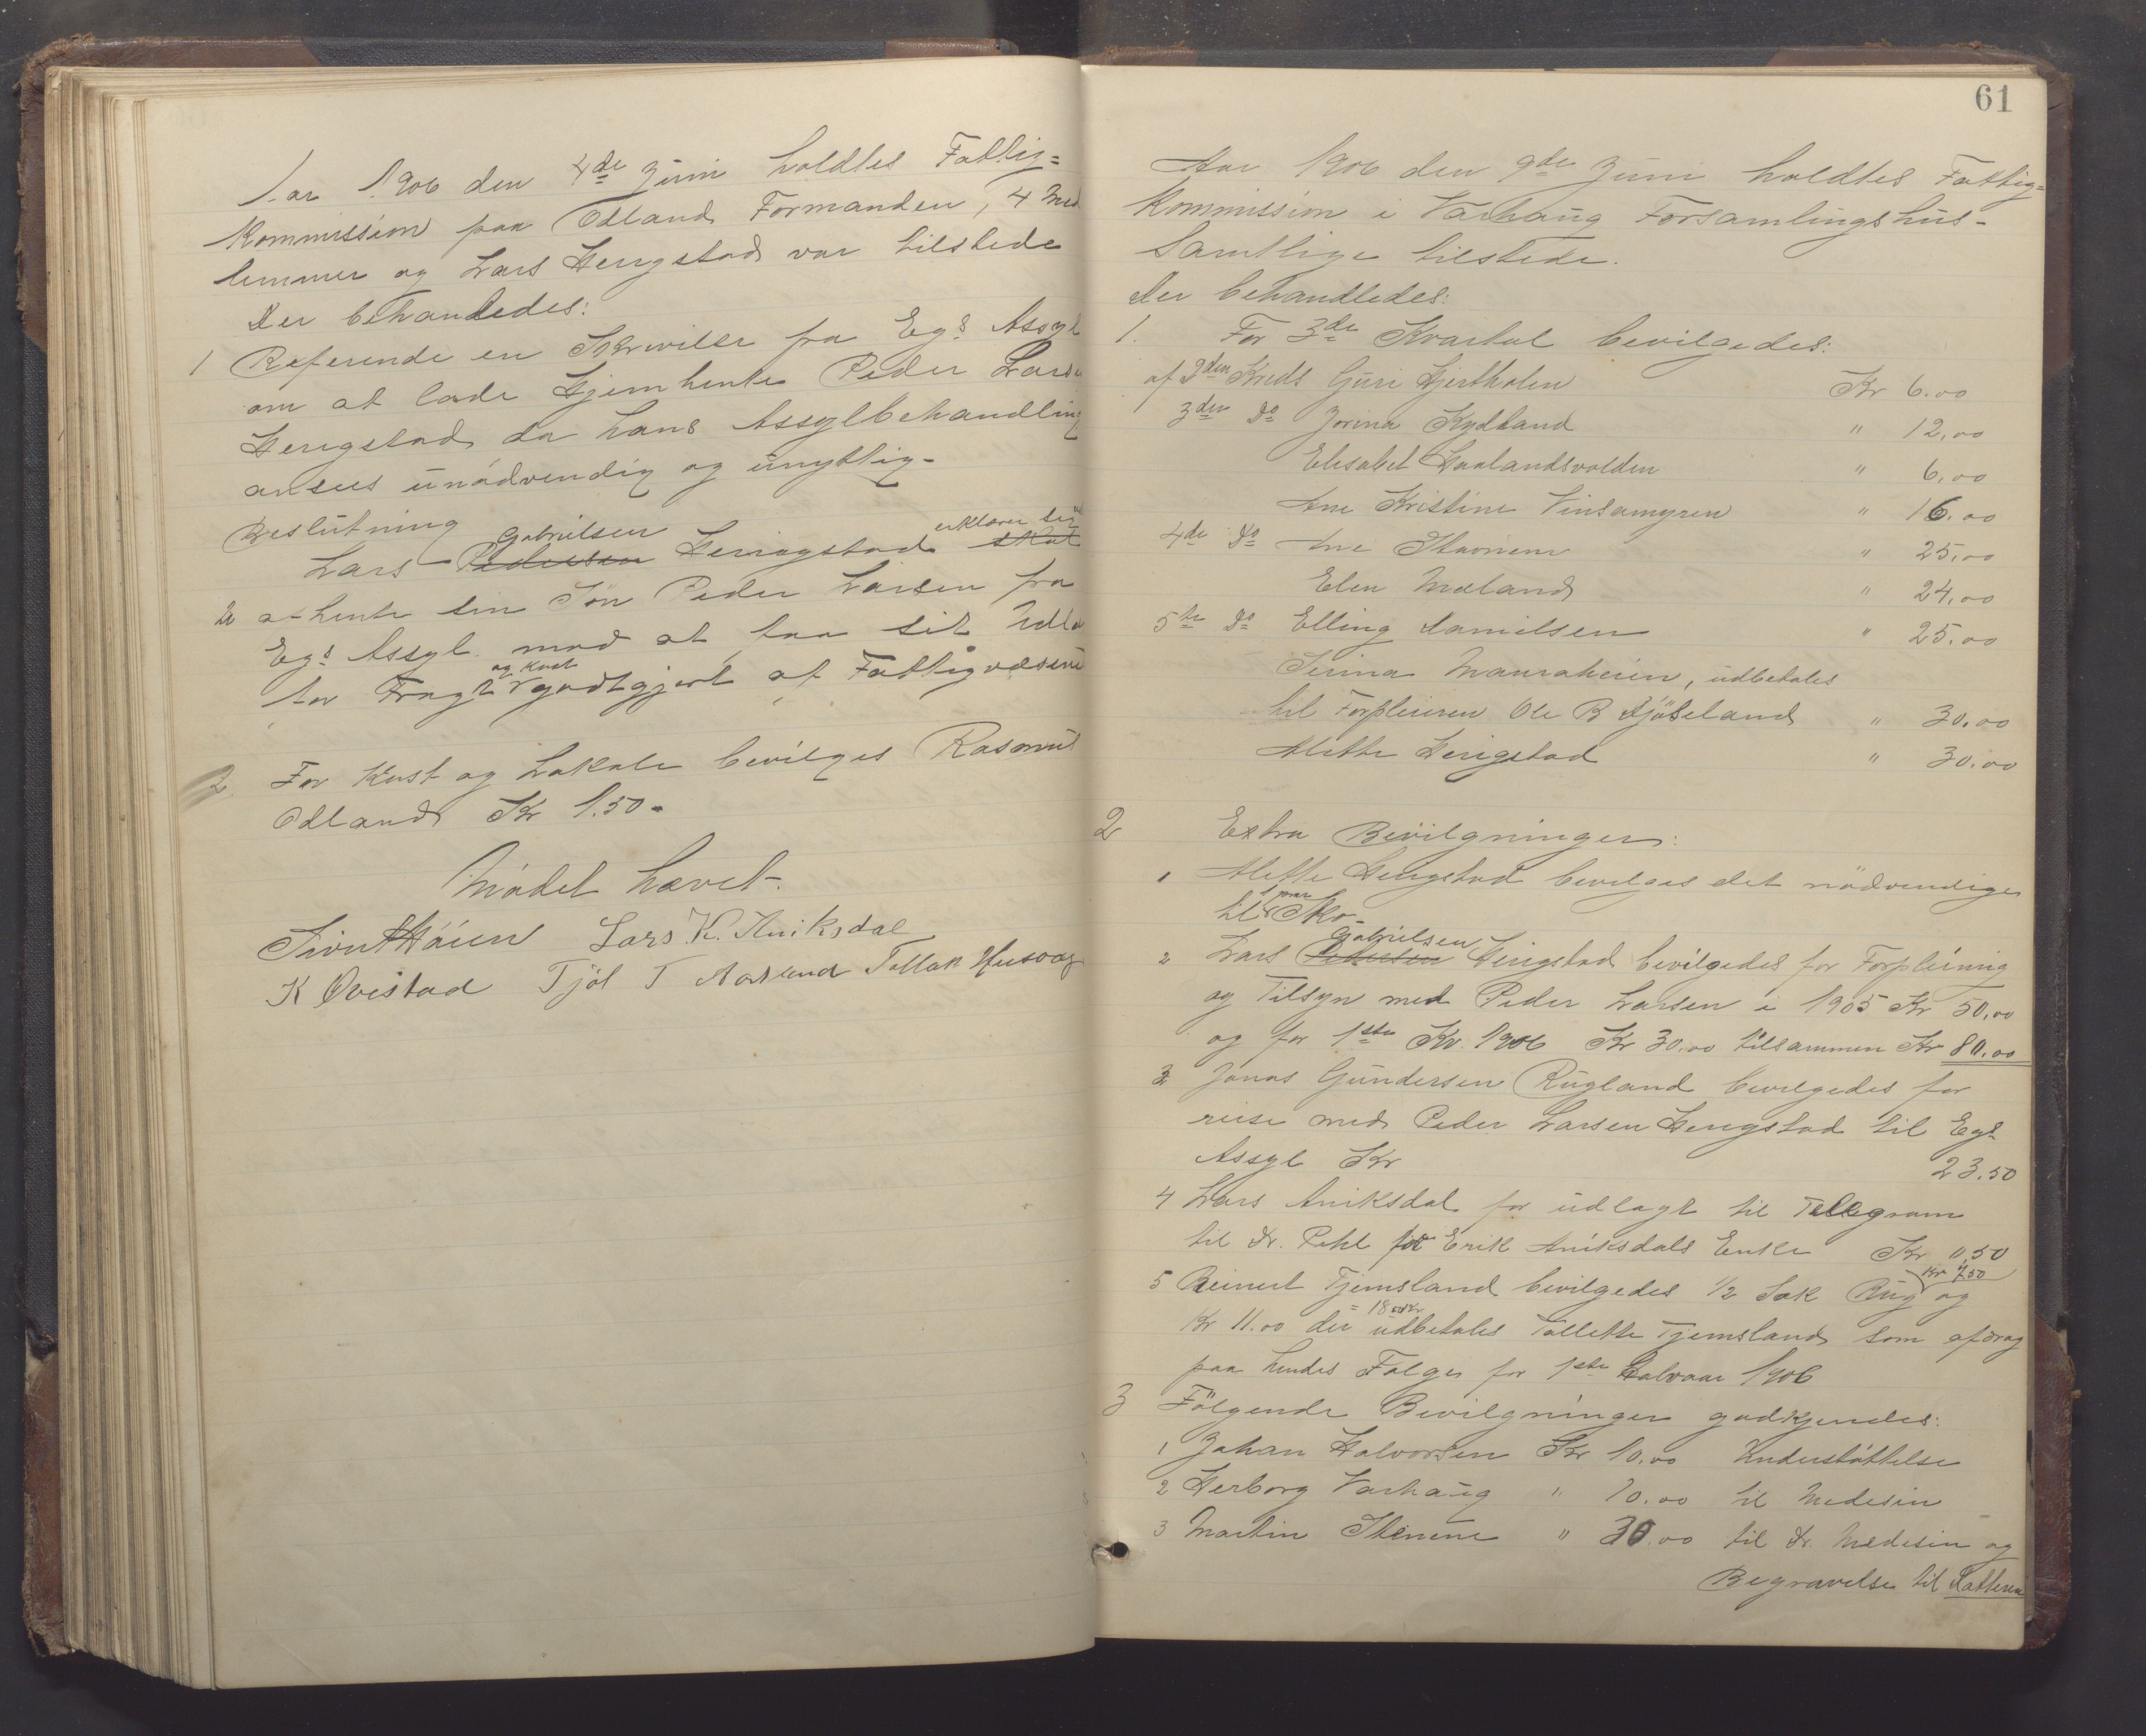 Aar 1906 den 4de Juni holdtes Fattig=
Kommission paa Odland Formanden, 4 Med
lemmer og Lars Herigstad var tilstede
Der behandledes:
1 Referende en Skrivelse fra Egs Assyl
om at lade Hjemhente Peder Larse
Herigstad da hans Assylbehandling
ansees unödvendig og unyttig-
Beslutning
Gabrielsen erklærer sig
Lars Pedersen Herigstad skal
at hente sin Sön Peder Larsen fra
Egs Assyl. mod at faa sit Udla
og Kost
for Fragt godtgjort af Fattigvæsene
2 For Kost og Lokale bevilges Rasmus
Odland Kr 1.50-
Mödet hævet-
Sivert Höien Lars K. Aniksdal
K Ovistad Tjöl T Aarland Tollak Husvæg
61
Aar 1906 den 9de Juni holdtes Fattig=
Kommission i Varhaug Forsamlingshus-
Samtlige tilstede.
Der behandledes:
1. For 3de Kvartal bevilgedes:
af 2den Kreds Guri Hjertholen Kr 6.00
3den Do Jorina Kydland " 12.00
Elisabet Haalandsvolden " 6.00
Ane Kristine Vinsamyren " 16.00
4de Do Ane Stavnem " 25.00
Elen Mæland " 24.00
5te Do Elling Danielsen " 25.00
Serina Mauraheien, udbetales
til Forpleieren Ole B Djöseland " 30.00
Mette Herigstad " 30.00
2 Extra Bevilgninger:
1 Mette Herigstad bevilges det nödvendige
1 par
til Sko-
Gabrielsen
2 Lars Pedersen Herigstad bevilgedes for Forpleining
og Tilsyn med Peder Larsen i 1905 Kr 50.00
og for 1ste Kv. 1906 Kr 30.00 tilsammen Kr 80.00
3 Jonas Gundersen Rugland bevilgedes for
reise med Peder Larsen Herigstad til Egs
Assyl Kr 23.50
4 Lars Aniksdal for udlagt til Tellegram
til Dr. Pihl for Erik Aniksdals Enke Kr 0,50
Kr 7.50
5 Reinert Tjemsland bevilgedes 1/2 Sæk Rug og
= 18 Kr
Kr 11.00 der udbetales Tollette Tjemsland som afdrag
paa hendes Folge for 1ste Halvaar 1906
3 Fölgende Bevilgninger godkjendes:
1 Johan Halvorsen Kr 10.00 Understöttelse
2 Herborg Varhaug " 10.00 til Medisin
3 Martin Stenene " 30.00 til Dr. Medisin og
Begravelse til Datteren